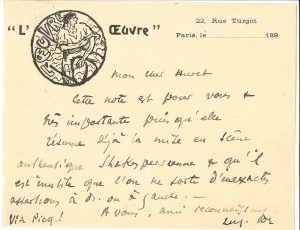 "L' Œuvre"
22, Rue Turgot
Paris, le 189
Mon cher Huret
Cette note est pour vous &
très importante puisqu'elle
résume déjà la mise en scène
authentique Shakespearienne & qu'il
est inutile que l'on ne sorte d'inexactes
assertions à dr. ou à gauche. —
A vous, ami